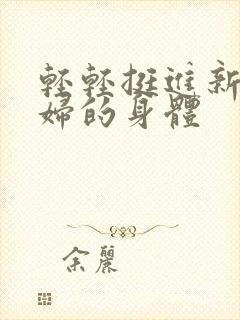 輕輕挺進新
婦的身體
余麗